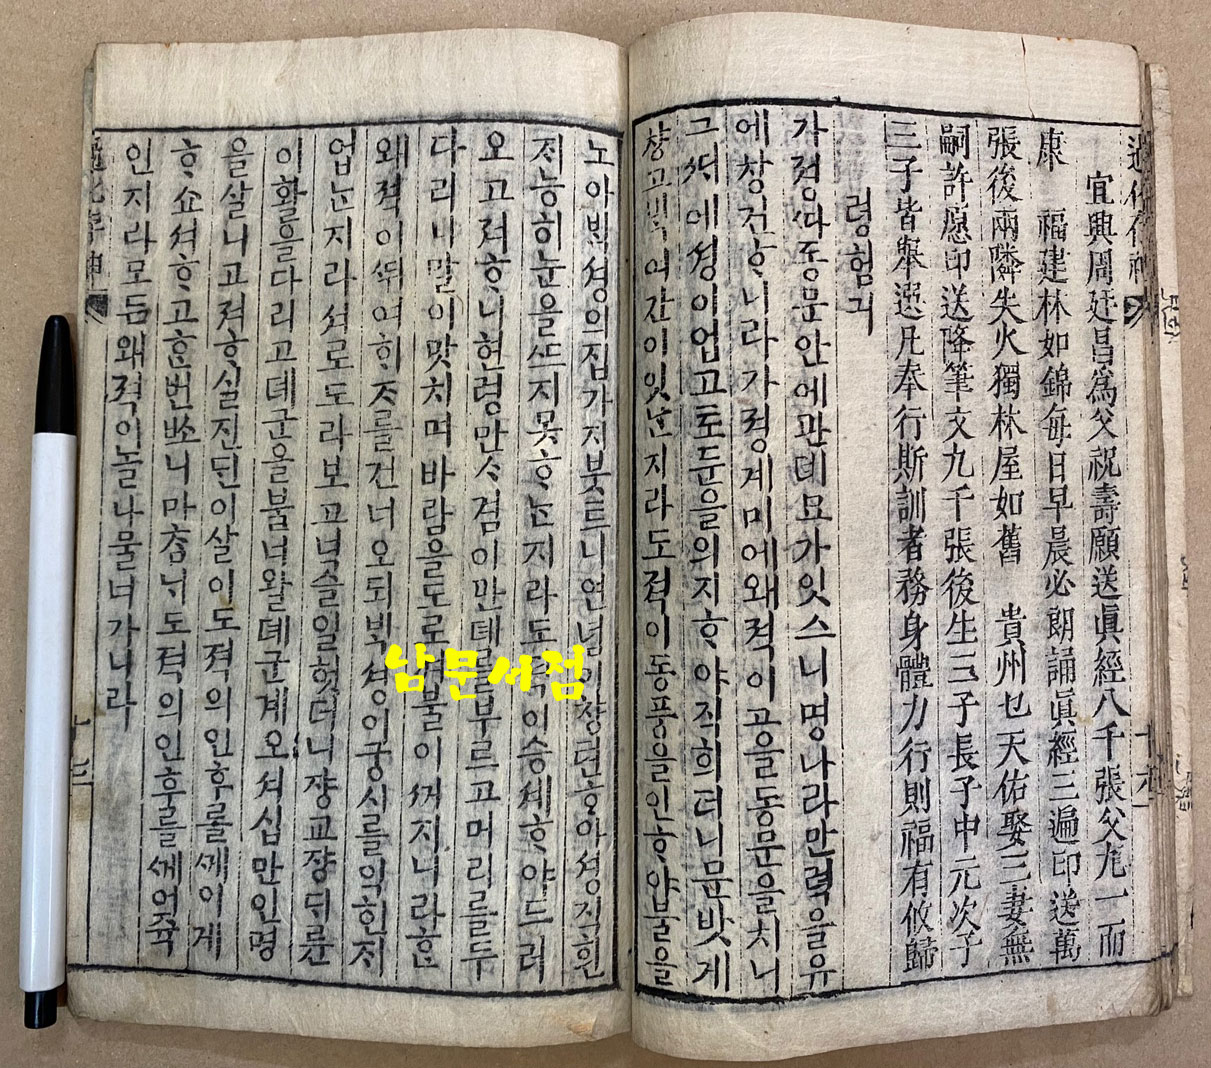 宜興周廷昌為父祝壽願送眞經八千張父九一而
康 福建林如錦每日早晨必朗誦眞經三遍印送萬
張後兩隣失火獨林屋如舊 貴州乜天佑娶三妻無
嗣許愿印送降筆文九千張後生三子長子中元次子
三子皆舉選凡奉行斯訓者務身體力行則福有攸歸
령험긔
가졍ᄯᅡ동문안에관뎨묘가잇스니명나라만력을유
에창건ᄒᆞ니라가졍계미에왜적이공을동문을치니
그ᄯᅢ에셩이업고토둔을의지ᄒᆞ야직희더니문밧게
이잇ᄂᆞᆫ지라도젹이동풍을인ᄒᆞ야불을
노아ᄇᆡᆨ셩의집가지붓트니연긔ᄒᆞ야셩직흰
지능히눈을ᄯᅳ지못ᄒᆞᄂᆞᆫ지라도젹이승셰ᄒᆞ야드러
오고져ᄒᆞ니현령만ᄉᆞ겸이만뎨를부르고머리를두
다리니말이맛치며바람을도로혀불이ᄭᅥ지니라ᄒᆞᆫ
왜젹이ᄯᅱ여ᄒᆡᄌᆞ를건너오되ᄇᆡᆨ셩이궁시를익힌지
업ᄂᆞᆫ지라셔로도라보고넉슬일헛더니쟝교쟝ᄃᆡ륜
이활을다리고뎨군을불너왈뎨군계오셔십만인명
을살니고져ᄒᆞ실진딘이살이도젹의인후를ᄭᅦ이게
ᄒᆞ쇼셔ᄒᆞ고ᄒᆞᆫ번ᄡᅩ니마ᄎᆞᆷᄂᆡ도젹의인후를ᄭᅦ여쥭
인지라모든왜젹이놀나물너가니라
남문서점